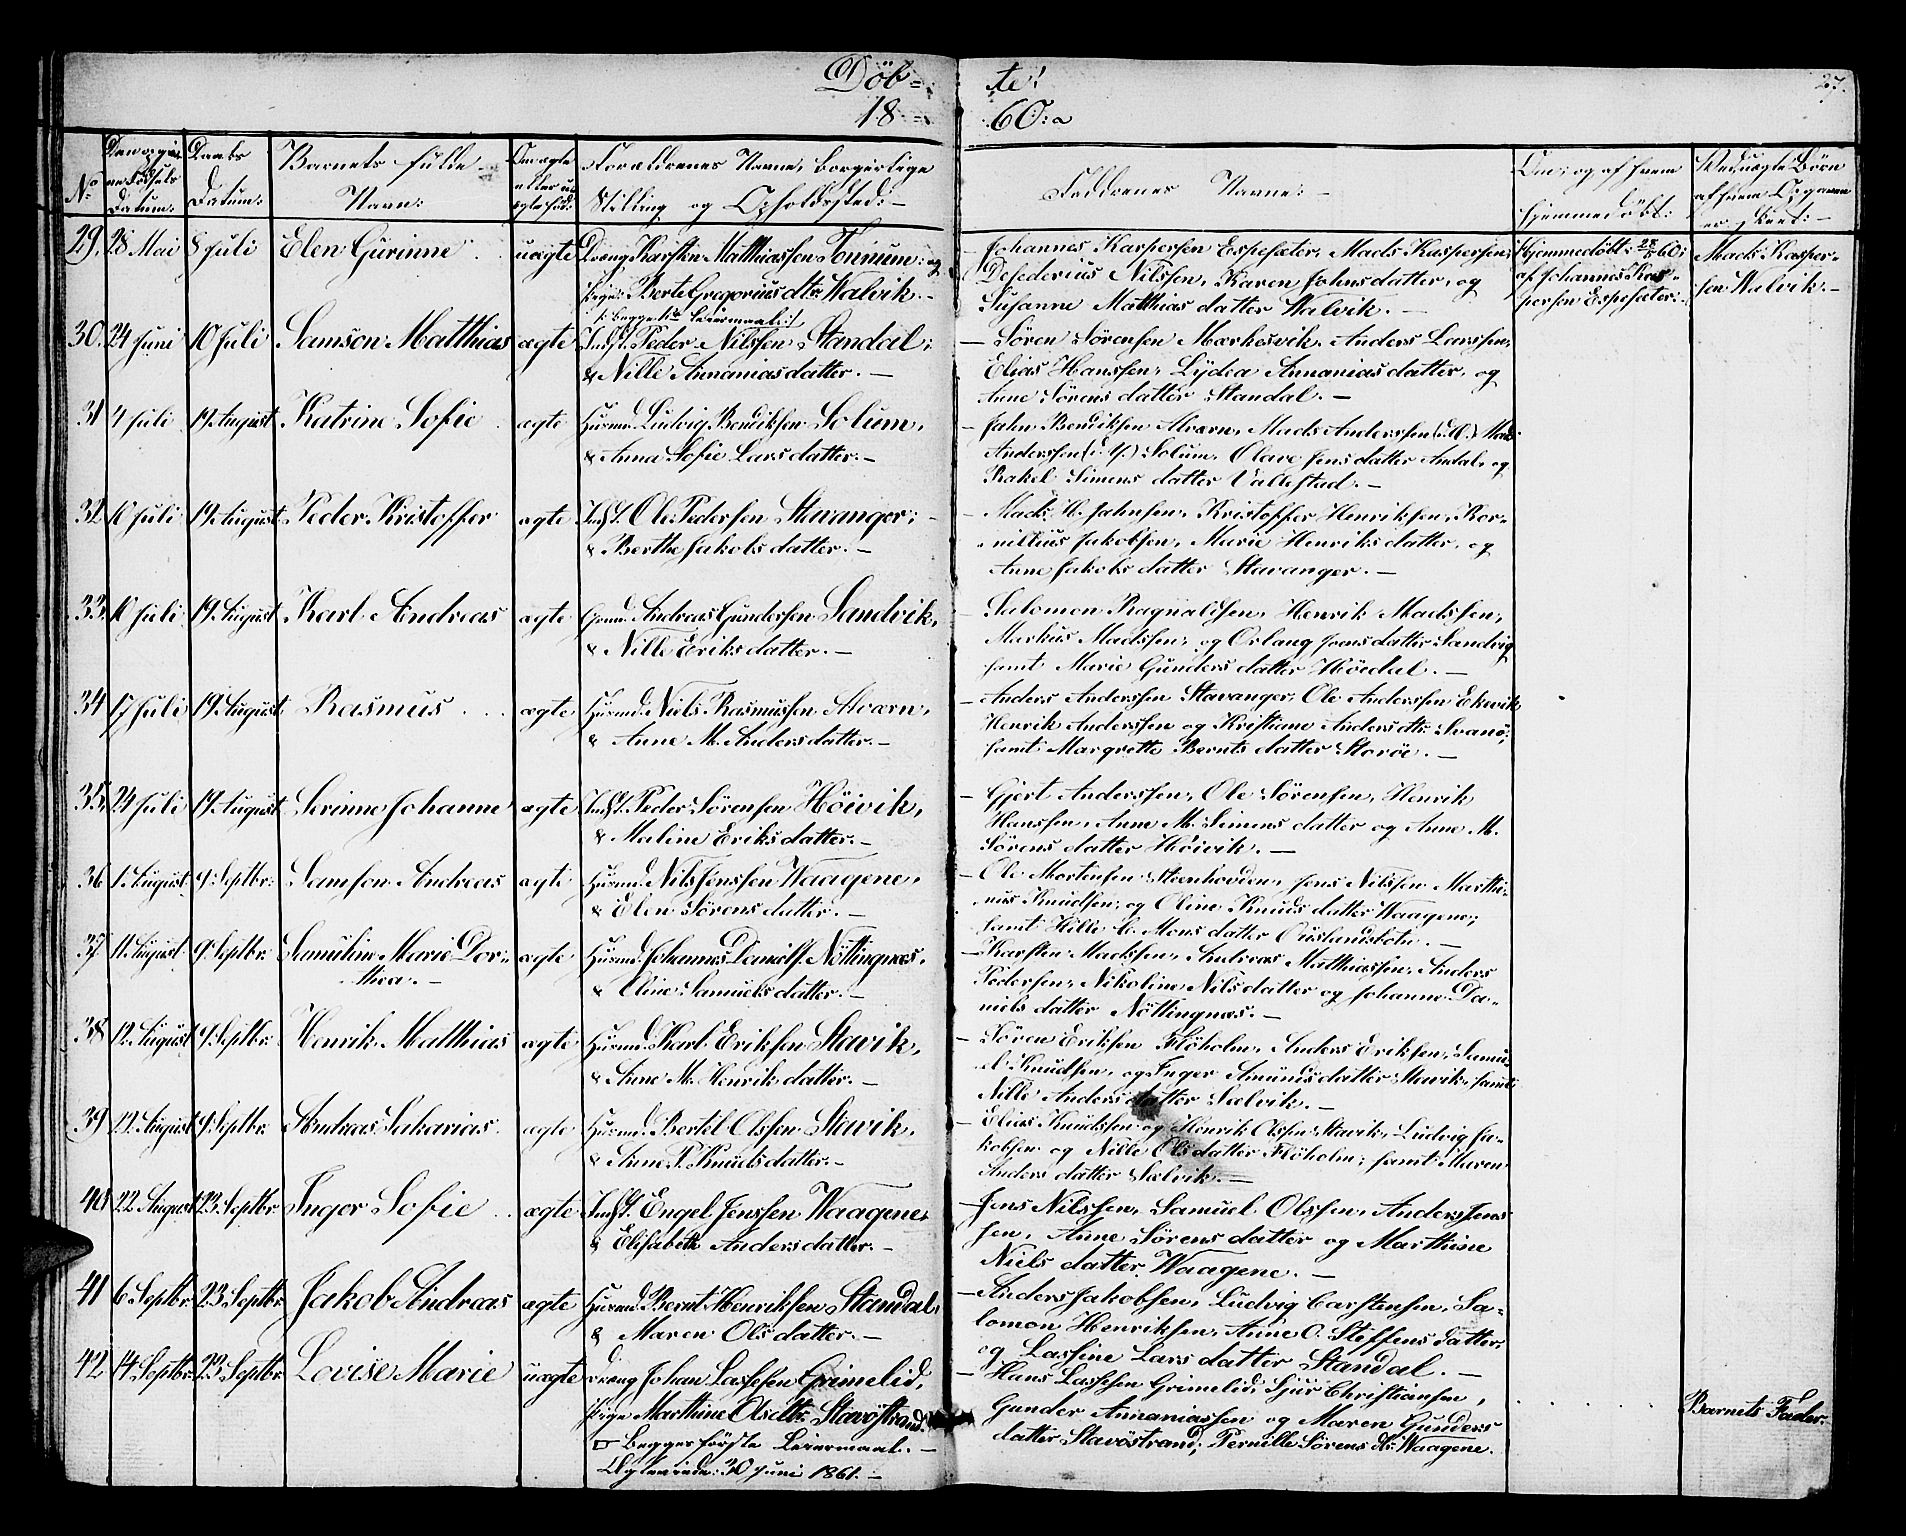 Döb= te!
18 60:
27.
No
Den opgivne Fødsels Datum:
Daabs Datum:
Barnets fulde Navn:
Om ægte eller uægte fød:
Forældrenes Navne, borgerlige Stilling og Opholdssted:
Faddrenes Navne:
Om, og af hvem hjemmedöbt:
Ved uægte Børn af hvem Opgaven er skeet:
29. 28 Mai 8 Juli Elen Gurinne uægte Dreng Karsten Matthiassen Tonnum: og
Pige: Berte Gregorius dtr: Walvik.
/: begge 1ste Leiermaal:/
Johannes Kaspersen Espesæter, Mads Kaspersen,
Desederius Nilssen, Karen Johnsdatter, og
Susanne Matthias datter Walvik.
Hjemmedöbt: 28/5 60:
af Johannes Kas-
persen Espesæter.
Mads Kasper-
sen Walvik.
30. 24 Juni 10 Juli Samson Matthias ægte Indst. Peder Nilssen Standal;
& Nille Annanias datter.
Sören Sörensen Markesvik, Anders Larssen,
Elias Hanssen, Lydea Annanias datter, og
Anne Sörens datter Standal.
31 4 Juli 19 August Katrine Sofie ægte Husmd. Ludvig Bendiksen Solum,
& Anna Sofie Lars datter.
Jahn Bendiksen Alværn, Mads Anderssen Mads
Anderssen Solum, Olave Jens datter Andal, og
Rakel Simens datter Vallestad.
32 10 Juli 19 August Peder Kristoffer ægte Indst. Ole Pedersen Stavanger;
& Berthe Jakobs datter.
Mads H. Jahnsen, Kristoffer Henriksen, Kor-
nelius Jakobsen, Marie Henriks datter, og
Anne Jakobs datter Stavanger.
33 10 Juli 19 August Karl Andreas ægte Gbmd. Andreas Gundersen Sandvik,
& Nille Eriks datter.
Salomon Ragnaldsen, Henrik Madssen,
Markus Madssen, og Orlaug Jens datter Sandvig
samt Marie Gunders datter Höidal.
34 17 Juli 19 August Rasmus ægte Husmd. Niels Rasmussen Alværn,
& Anne M. Anders datter.
Anders Anderssen Stavanger, Ole Anderssen Ekevik,
Henrik Anderssen og Kristiane Anders dtr: Svanö,
samt Margrette Bernts datter Storöe.
35 24 Juli 19 August Serinne Johanne ægte Indst. Peder Sörensen Höivik,
& Maline Eriks datter.
Gjert Anderssen, Ole Sörensen, Henrik
Hanssen, Anne M. Simens datter og Anne M.
Sörens datter Höivik.
36 1 August 9 Septbr: Samson Andreas ægte Husmd. Nils Jenssen Waagene,
& Elen Sörens datter.
Ole Mortensen Steenhovden, Jens Nilssen Marthi-
nus Knudsen, og Oline Knuds datter Waagene;
samt Hille C. Mons datter Ouslandsbotn.
37 11 August 9 Septbr: Samuline Marie Dor-
thea.
ægte Husmd. Johannes Danielss. Nöttingnæs,
& Eline Samuels datter.
Karsten Madssen, Andreas Matthiassen, Anders
Pedersen, Nikoline Nils datter og Johanne Da-
niels datter Nöttingnæs.
38 12 August 9 Septbr: Henrik Matthias ægte Husmd. Karl Eriksen Stavik,
& Anne M. Henriks datter.
Sören Eriksen Flöholm, Anders Eriksen, Samu-
el Knudsen, og Inger Amunds datter Stavik, samt
Nille Anders datter Sælvik.
39 22 August 9 Septbr: Andreas Sakarias ægte Husmd. Bertel Olssen Stavik,
& Anne P. Knuds datter.
Elias Knudssen og Henrik Olssen Stavik, Ludvig Ja-
kobsen og Nille Ols datter Flöholm; samt Maren
Anders datter Sælvik.
40 22 August 23 Septbr: Inger Sofie ægte Indst. Engel Jenssen Waagene,
& Elisabeth Anders datter.
Jens Nilssen, Samuel Olssen, Anders Jens-
sen, Anne Sörens datter og Marthine
Niels datter Waagene.
41 6 Septbr 23 Septbr: Jakob Andreas ægte Husmd. Bernt Henriksen Standal,
& Maren Ols datter.
Anders Jakobsen, Ludvig Carstensen, Sa-
lomon Henriksen, Anne O. Steffens datter,
og Lassine Lars datter Standal.
42 14 Septbr: 23 Septbr: Lovise Marie uægte Dreng Johan Lassesen Grimelid,
Pige Marthine Olsdtr. Stavöstrand.
Begges förste Leiermaal.
Ægteviede: 30 Juni 1861.
Hans Lassesen Grimelid, Sjur Christiansen,
Gunder Annaniassen og Maren Gunders
datter Stavöstrand; Pernille Sörens dtr: Waagene.
Barnets Fader.